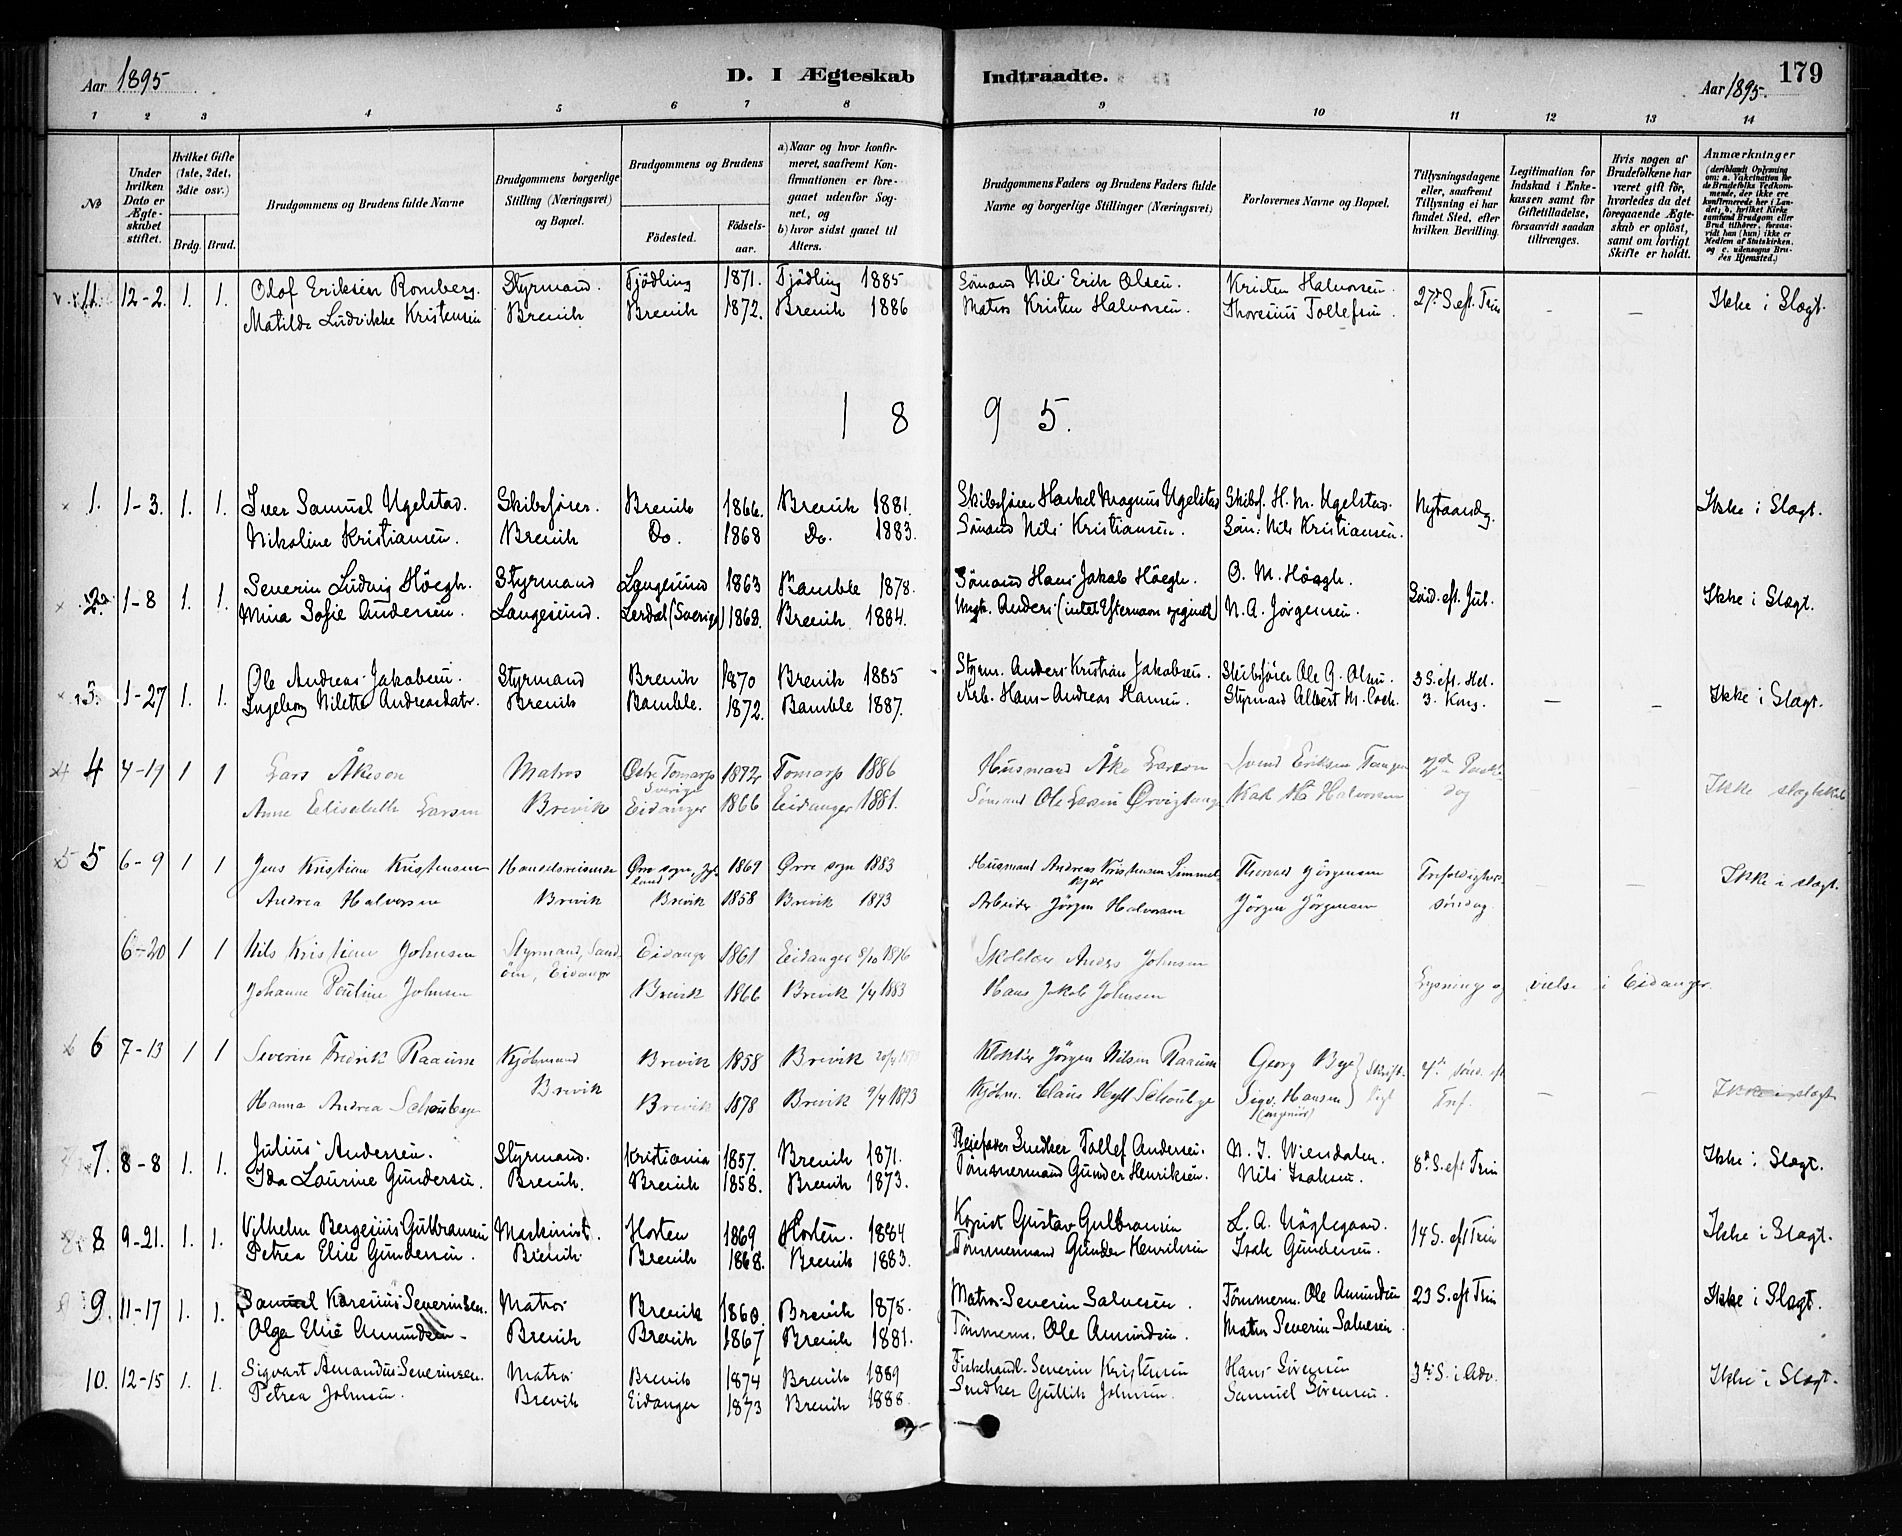 Aar 1895 D. I Ægteskab Indtraadte. Aar 1895. 179
1 2 3 4 5 6 7 8 9 10 11 12 13 14
№
Under hvilken Dato er Ægteskabet stiftet.
Hvilket Gifte (1ste, 2det, 3die osv.)
Brdg. Brud.
Brudgommens og Brudens fulde Navne
Brudgommens borgerlige Stilling (Næringsvei) og Bopæl.
Brudgommens og Brudens
Födested. Födsels-aar.
a) Naar og hvor konfirmeret, saafremt Konfirmationen er foregaaet udenfor Sognet, og
b) hvor sidst gaaet til Alters.
Brudgommens Faders og Brudens Faders fulde Navne og borgerlige Stillinger (Næringsvei)
Forlovernes Navne og Bopæl.
Tillysningsdagene eller, saafremt Tillysning ei har fundet Sted, efter hvilken Bevilling.
Legitimation for Indskud i Enkekassen samt for Giftetilladelse, forsaavidt saadan tiltrænges.
Hvis nogen af Brudefolkene har været gift för, hvorledes da det foregaaende Ægteskab er oplöst, samt om lovligt Skifte er holdt.
Anmærkninger (deriblandt Oplysning om: a. Vakcination for de Brudefolks Vedkommende, der ikke ere konfirmerede her i Landet; b. hvilket Kirkesamfund Brudgom eller Brud tilhörer, forsaavidt han (hun) ikke er Medlem af Statskirken, og c. udensogns Brudes Hjemsted.)
11. 12-2. 1. 1. Olof Eriksen Romberg. Styrmand. Tjödling 1871. Tjödling 1885 Sömand Nils Erik Olsen. Kristen Halvorsen. 27de S. eft. Trin - - Ikke i Slægt.
Matilde Ludvikke Kristensen Brevik Brevik 1872. Brevik 1886 Matros Kristen Halvorsen. Thoresius Tollefsen.
1 8 9 5.
1. 1-3. 1. 1. Iver Samuel Ugelstad. Skibsförer. Brevik 1866. Brevik 1881. Skibsförer Harkel Magnus Ugelstad Skibsf. H. M. Ugelstad. Nytaarsdg. Ikke i Slægt.
Nikoline Kristiansen. Brevik Do. 1868 Do. 1883. Sömand Nils Kristiansen. Söm. Nils Kristiansen.
2. 1-8 1. 1. Severin Ludvig Höegh. Styrmand Langesund 1863 Bamble 1878. Sömand Hans Jakob Höegh. O. M. Höegh. Söid. eft. Jul. Ikke i Slægt.
Mina Sofie Andersen. Langesund. Lerdal (Sverige) 1868. Brevik 1884. Ungk. Anders (intet Efternavn opgivet) N. A. Jörgensen.
3. 1-27 1. 1. Ole Andreas Jakobsen. Styrmand Brevik 1870 Brevik 1885 Styrm. Anders Kristian Jakobsen. Skibsförer Ole G. Olsen. 3 S. eft. Hel. - - Ikke i Slægt.
Ingeborg Nilette Andreasdatr. Brevik Bamble. 1872. Bamble 1887. Arb. Hans Andreas Hansen. Styrmand Albert M. Coch. 3. Kong.
4 4-14 1 1 Lars Åkeson Matros Östr. Tomarp Sverige 1872 Tomarp 1886 Husmand Åke Larson Svend Eriksen Tangen 2den Paaskedag - - Ikke slægtskab
Anne Elisabeth Larsen Brevik Eidanger 1866 Eidanger 1881. Sömand Ole Larsen Örvigtange Halvorsen
5 6-9 1 1 Jens Kristian Kristensen Handelsreisende Örre sogn, Jylland 1869 Örre sogn 1883 Husmand Andreas Kristensen Simmelkjær Thomas Jörgensen Trefoldighedssöndag - Ikke i slægt.
Andrea Halvorsen Brevik Brevik 1858 Brevik 1873 Arbeider Jörgen Halvorsen Jörgen Jörgensen
6-20 1 1 Nils Kristian Johnsen Styrmand, Sandöen, Eidanger Eidanger 1861 Eidanger 8/10 1876 Skolelærer Anders Johnsen
Johanne Pauline Johnsen Brevik 1866 Brevik 1/4 1883 Hans Jakob Johnsen Lysning og vielse i Eidanger.
6 7-13 1 1 Severin Fredrik Raaum Kjöbmand Brevik 1858 Brevik Klokker Jörgen Nilsen Raaum Georg Bye 4de sönd. eft Tref. - - Ikke i slægt
Hanna Andrea Schoubye Brevik Brevik 1878 Brevik 9/4 1893 Kjöbm. Claus Hyll Schoubye Sigv. Hansen (ingeniör)
7. 8-8 1. 1. Julius Andersen. Styrmand. Kristiania 1857. Brevik 1871. Snedker Tollef Andersen. N. J. Wiersdalen. 8de S. eft Trin Ikke i Slægt.
Ida Laurine Gundersen. Brevik. Brevik 1858. Brevik 1873. Tömmermand Gunder Henriksen. Nils Isaksen.
8 9-21. 1. 1. Vilhelm Bergesius Gulbransen Maskinist. Horten 1869 Horten. 1884 Kopist Gustav Gulbransen L. A. Nöglegaard. 14 S. eft Trin Ikke i Slægt.
Petrea Elise Gundersen. Brevik Brevik 1868. Brevik 1883. Tömmermand Gunder Henriksen Isak Gundersen.
9. 11-17 1. 1. Samuel Karenius Severinsen. Matros Brevik 1860. Brevik 1875. Matros Severin Salvesen. Tömmerm. Ole Amundsen 23 S. eft Trin Ikke i Slægt.
Olga Elise Amundsen Brevik Brevik 1867 Brevik 1881. Tömmerm. Ole Amundsen. Matros Severin Salvesen.
10. 12-15 1. 1. Sigvart Amandus Severinsen. Matros Brevik 1874 Brevik 1889 Fiskehandl. Severin Kristensen Hans Sörensen 3die S. i Adv. Ikke i Slægt.
Petrea Johnsen. Brevik Eidanger 1873 Brevik 1888. Snedker Gullik Johnsen. Samuel Sörensen.